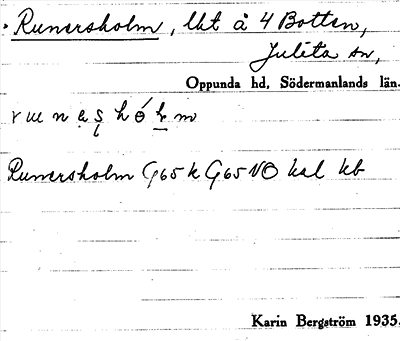 Runersholm, lht å 4 Botten,
Julita sn,
Oppunda hd, Södermanlands län.
Runersholm G65k G65NO kal kb
Karin Bergström 1935.